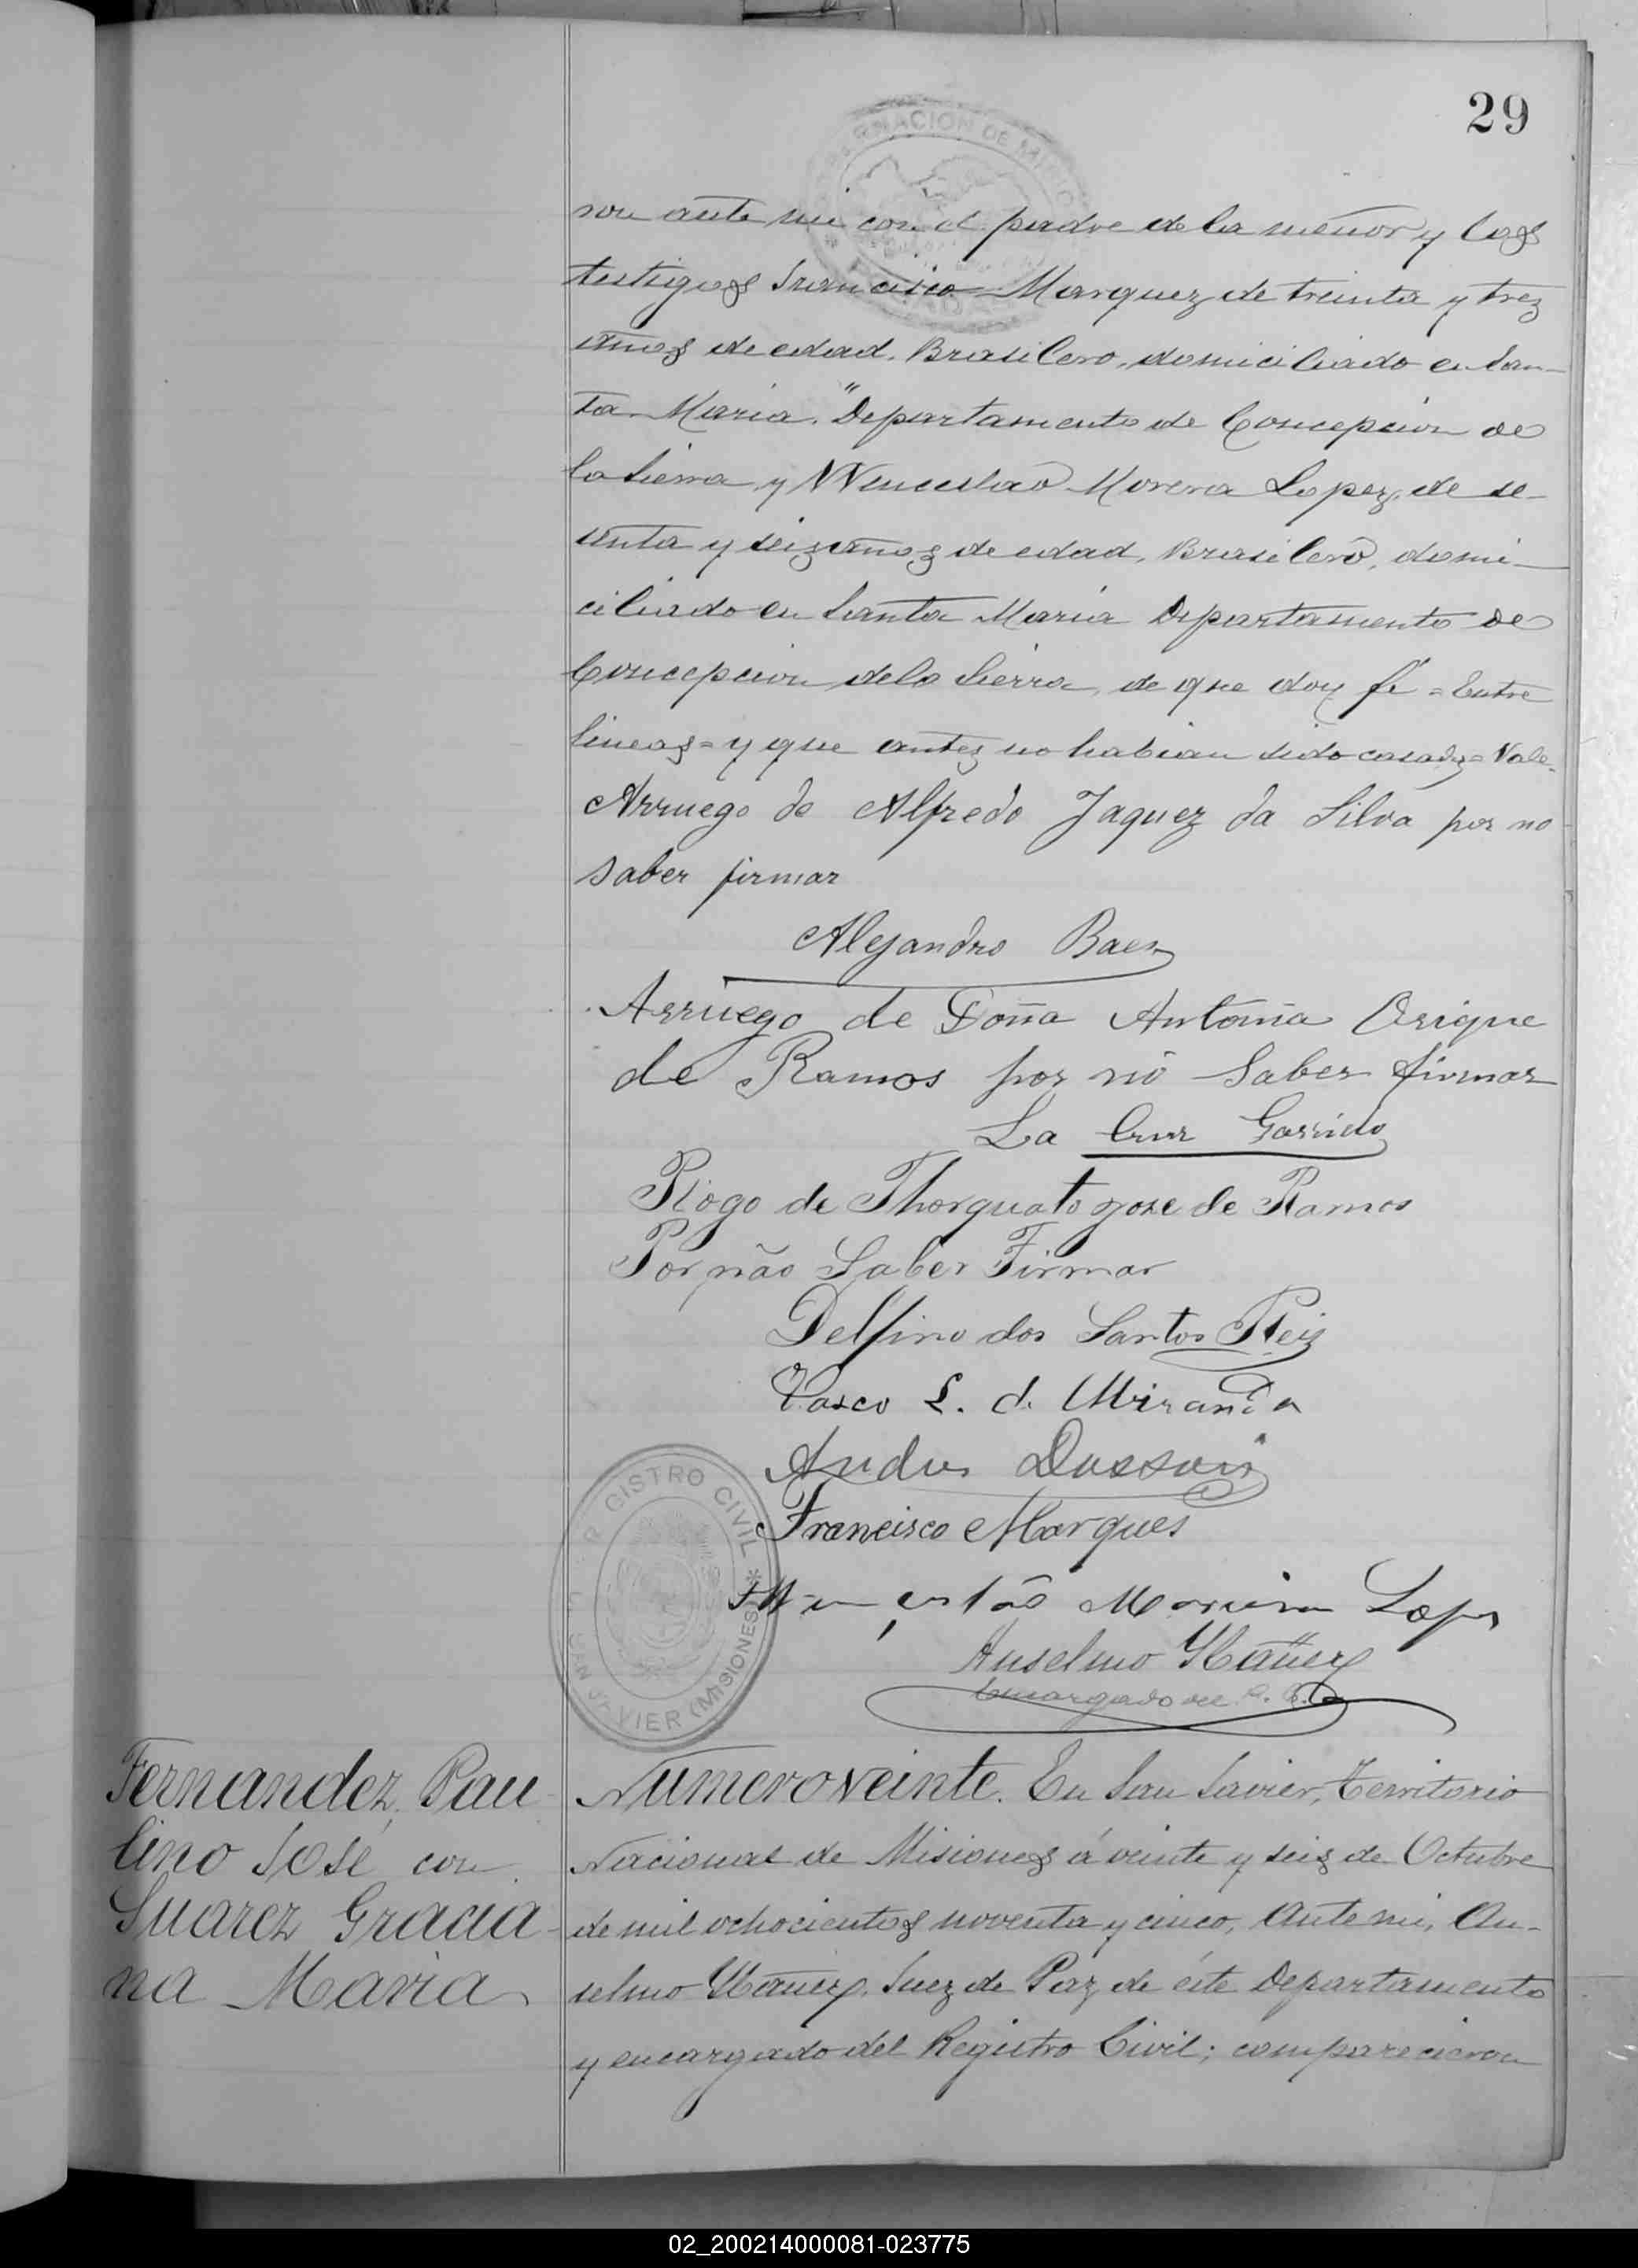 29
GOBERNACION DE MISIONES
ron ante mi con el padre de la menor y los
testigos Francisco Marquez de treinta y tres
años de edad, Brasilero, domiciliado en San-
ta Maria, "Departamento de Concepcion de
la Sierra y Wenceslao Morera Lopez, de se-
senta y seis años de edad, Brasilero, domi-
ciliado en Santa Maria Departamento de
Concepcion de la Sierra, de que doy fé = Entre
lineas = y que antes no habian sido casados = Vale.
Arruego de Alfredo Jaquez da Silva por no
saber firmar
Alejandro Baez
Arruego de Doña Antonia Orique
de Ramos por no saber firmar
La Cruz Garrido
Rogo de Thorquato Jose de Ramos
Por não Saber Firmar
Delfino dos Santos Reis
Vasco L. d. Miranda
Andres
Francisco Marques
Lopes
Anselmo Ybañez
Encargado del R. C.
REGISTRO CIVIL * SAN JAVIER (MISIONES)
Fernandez, Pau-
lino José con
Suarez Gracia-
na Maria
Numero veinte. En San Javier, Territorio
Nacional de Misiones á veinte y seis de Octubre
de mil ochocientos noventa y cinco, Ante mi, An-
selmo Ybañez, Juez de Paz de éste Departamento
y encargado del Registro Civil; comparecieron
02_200214000081-023775